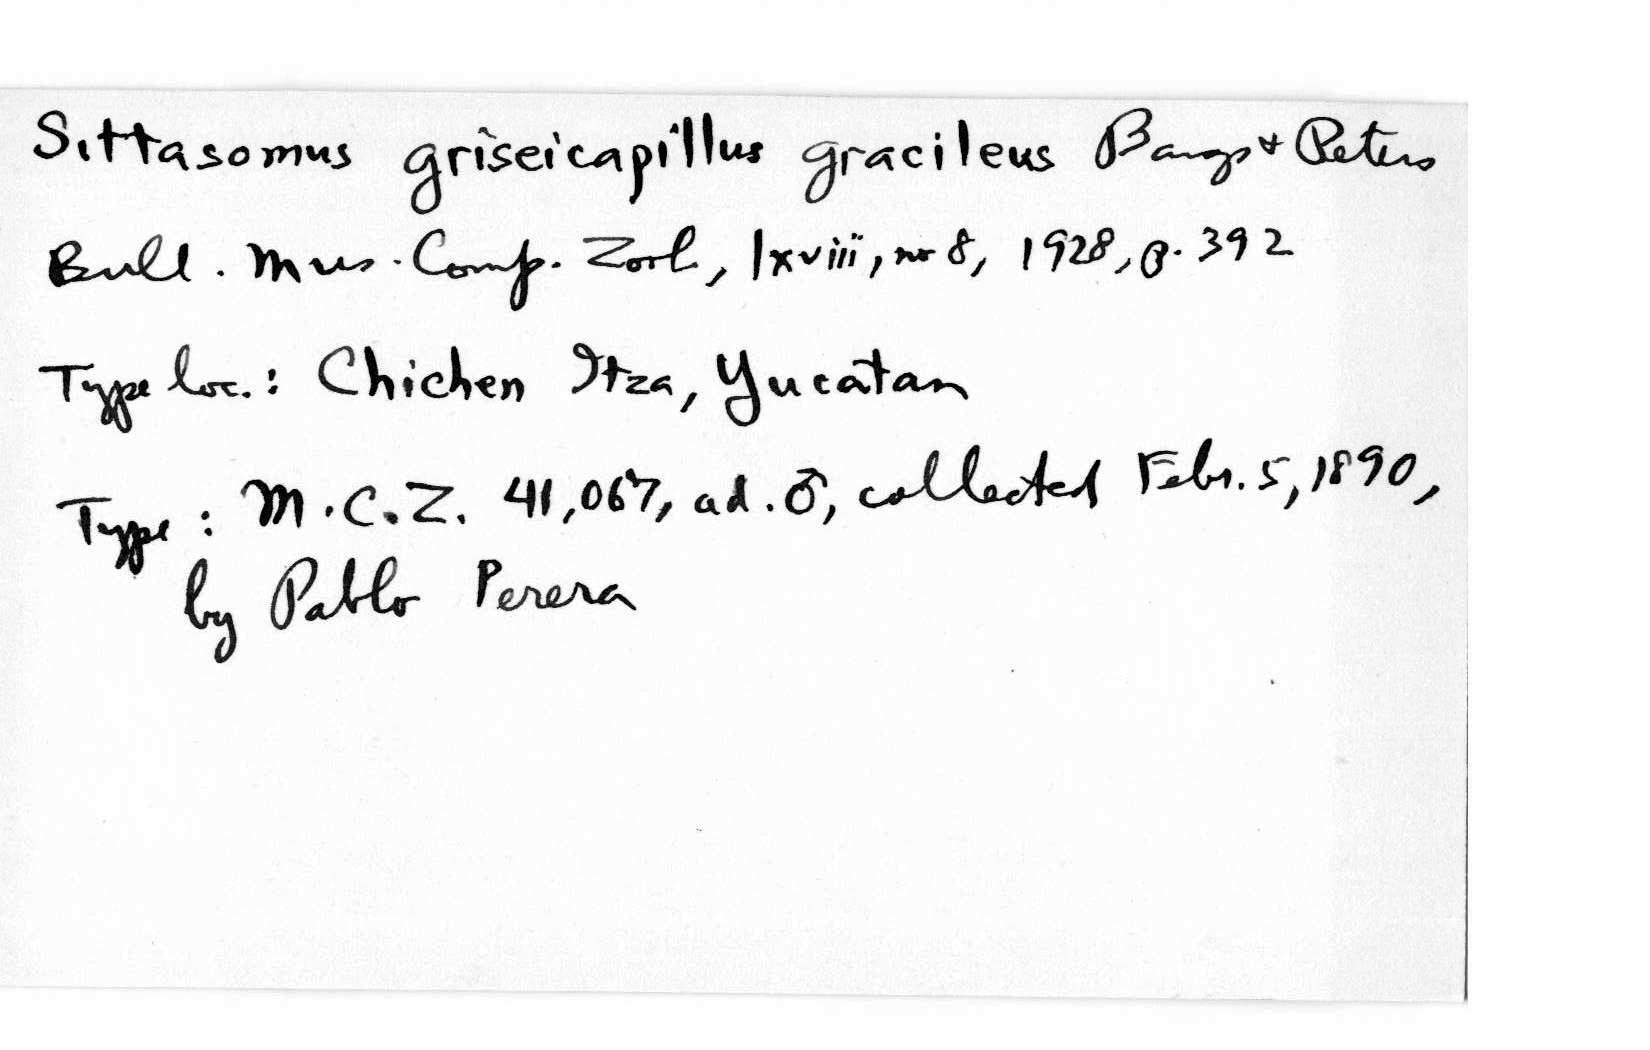 Sittasomus griseicapillus gracileus Bangs & Peters
Bull. Mus. Comp. Zool., lxviii, no 8, 1928, p. 392
Type loc.: Chichen Itza, Yucatan
Type: M.C.Z. 41,067, ad. ♂, collected Febr. 5, 1890,
by Pablo Perera